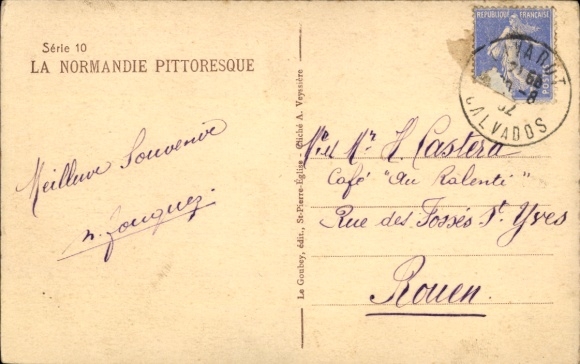 Série 10
LA NORMANDIE PITTORESQUE
Meilleur Souvenir
Le Goubey, édit., St-Pierre-Église - Cliché A. Veyssière
RÉPUBLIQUE FRANÇAISE
CALVADOS
Me et Mr H. Castera
Café "au Ralenti"
Rue des Fossés St Yves
Rouen.